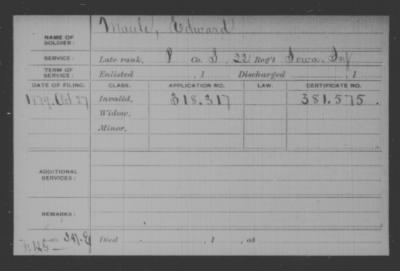 NAME OF SOLDIER: Maule, Edward
SERVICE: Late rank, P Co. I, 22 Reg't Iowa Inf
TERM OF SERVICE: Enlisted , 1 Discharged , 1
DATE OF FILING. CLASS. APPLICATION NO. LAW. CERTIFICATE NO.
1879, Oct 27 Invalid, 318.317 381.575
Widow,
Minor,
ADDITIONAL SERVICES:
REMARKS:
Died , 1 , at